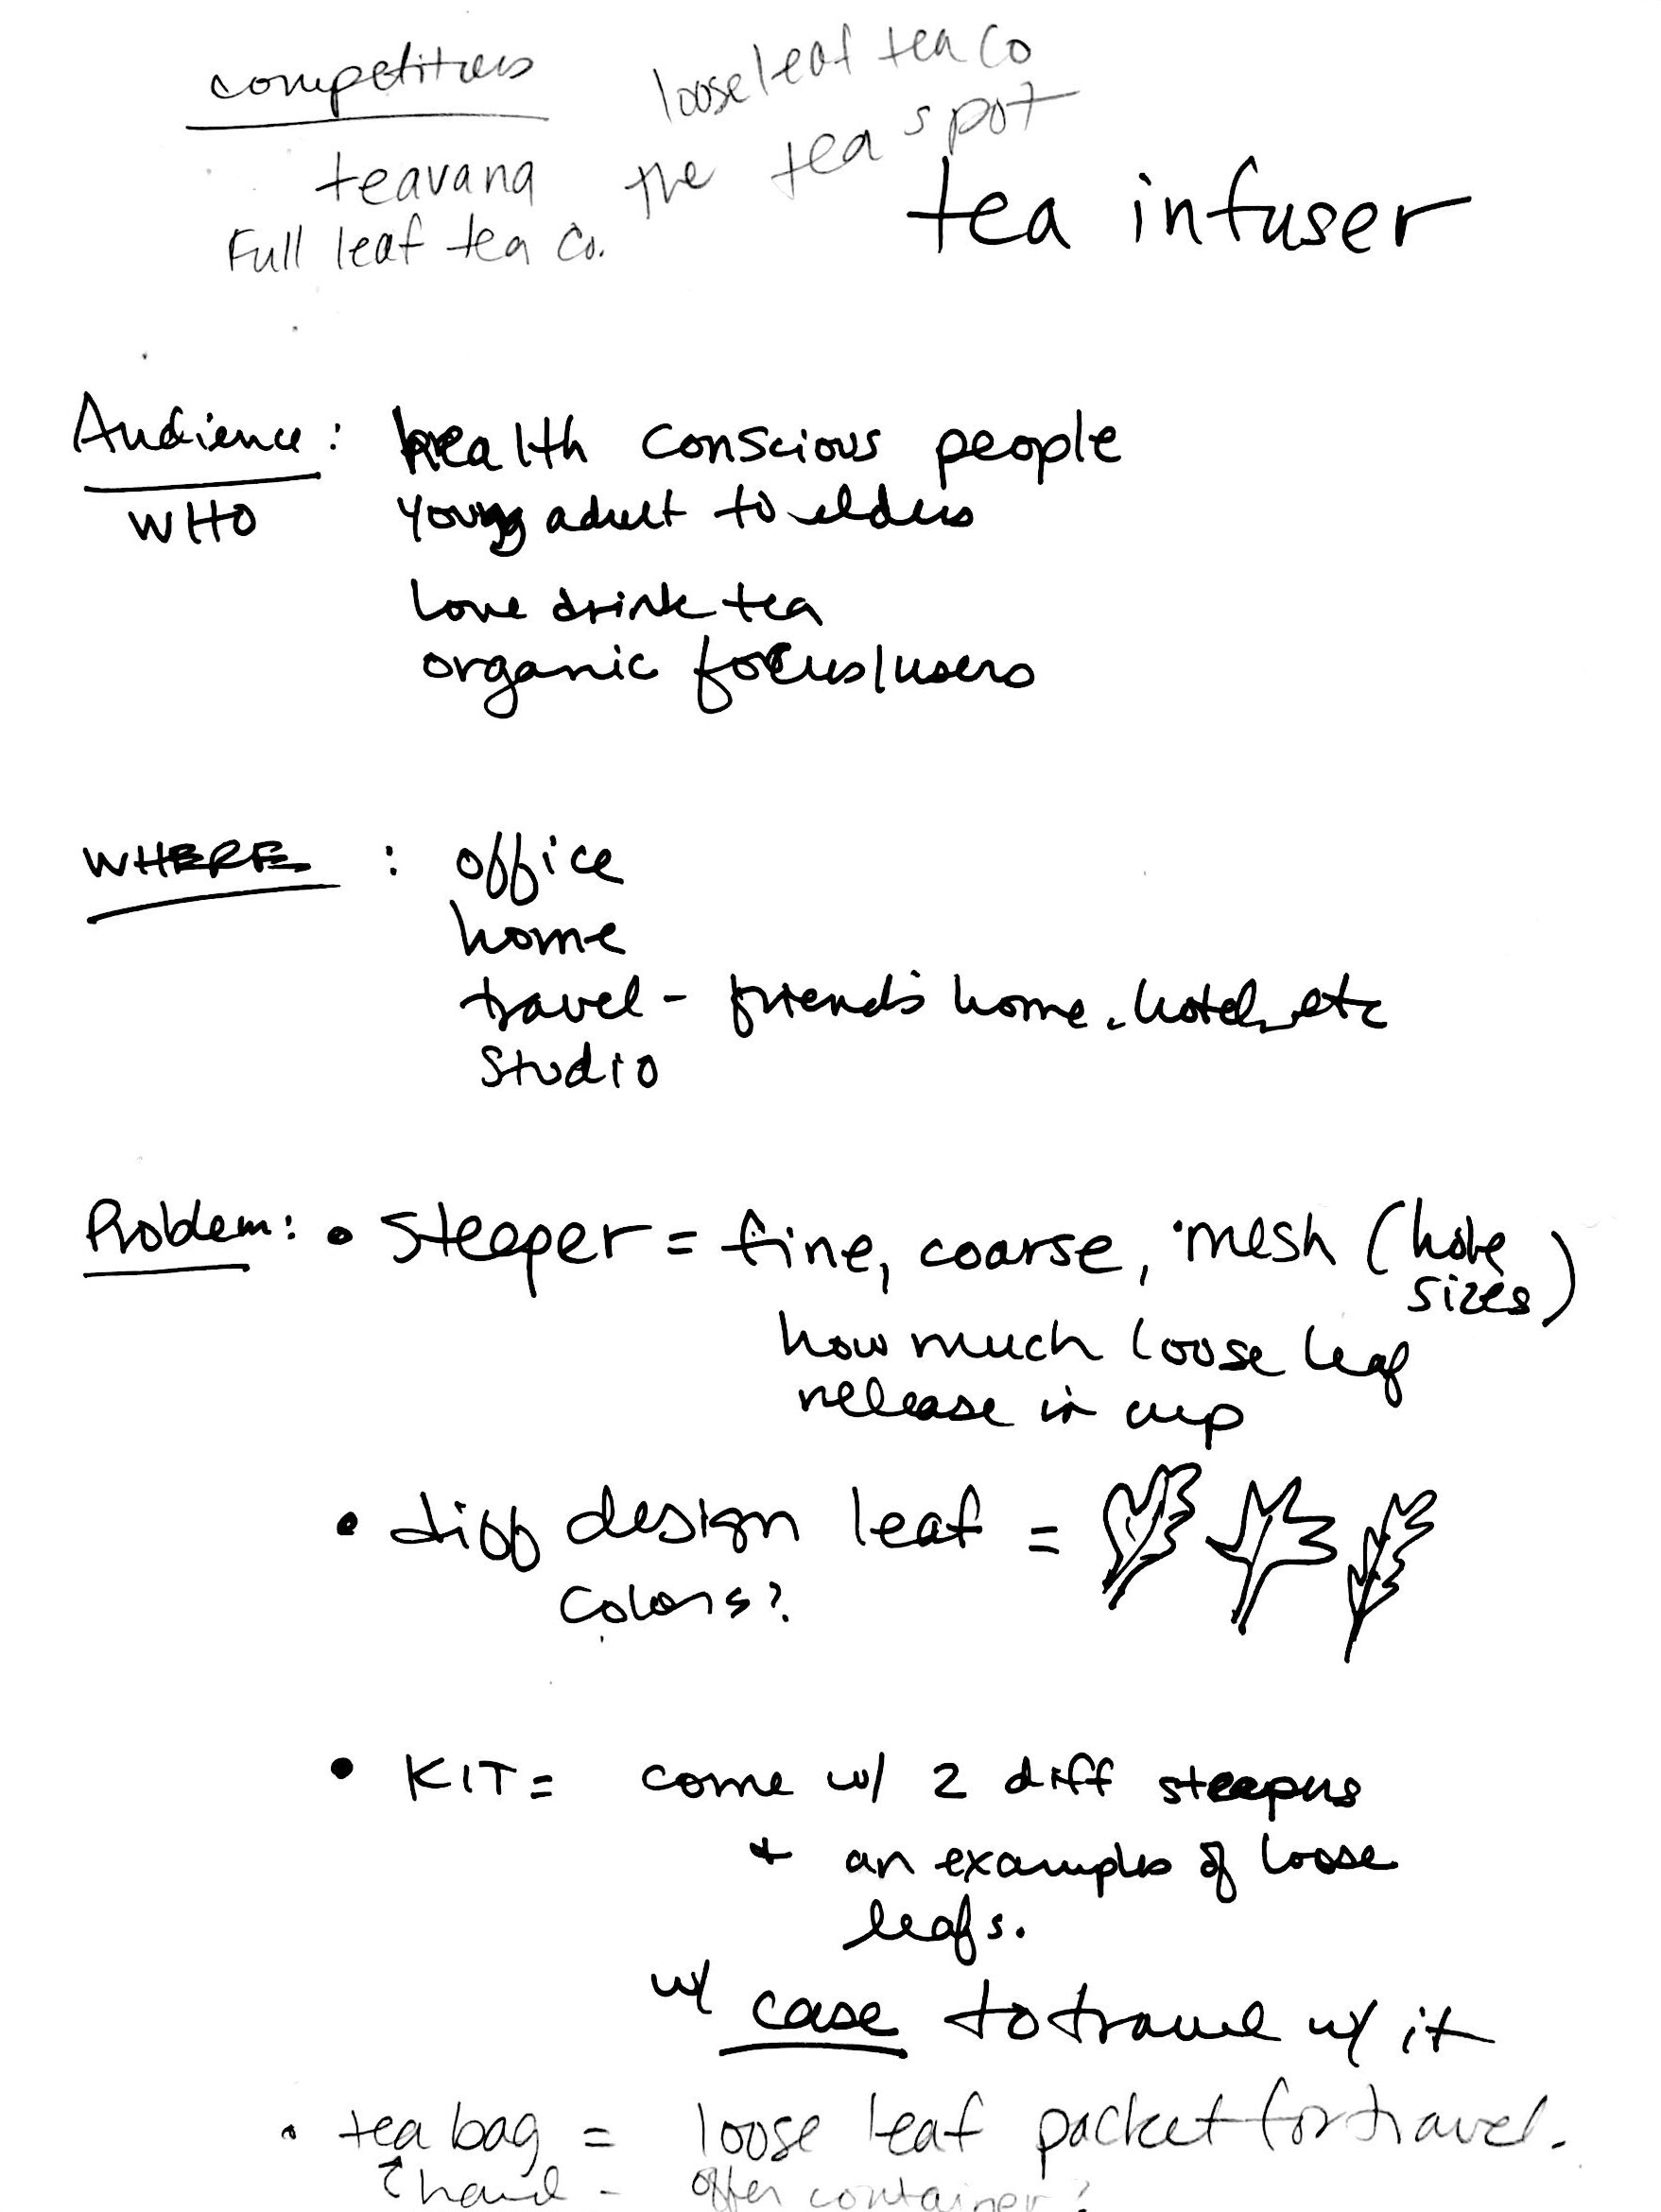 competitors
loose leaf tea co
teavana
the tea spot
Full leaf tea Co.
tea infuser
Audience: health conscious people
WHO young adult to elders
love drink tea
organic focus/users
WHERE : office
home
travel - friends home, hotel, etc
Studio
Problem: • Steeper = fine, coarse, mesh (hole sizes)
how much loose leaf
release in cup
• diff design leaf =
colors?
• KIT = come w/ 2 diff steepers
+ an examples of loose
leafs.
w/ case to travel w/ it
• tea bag = loose leaf packet for travel.
hand - offer container?